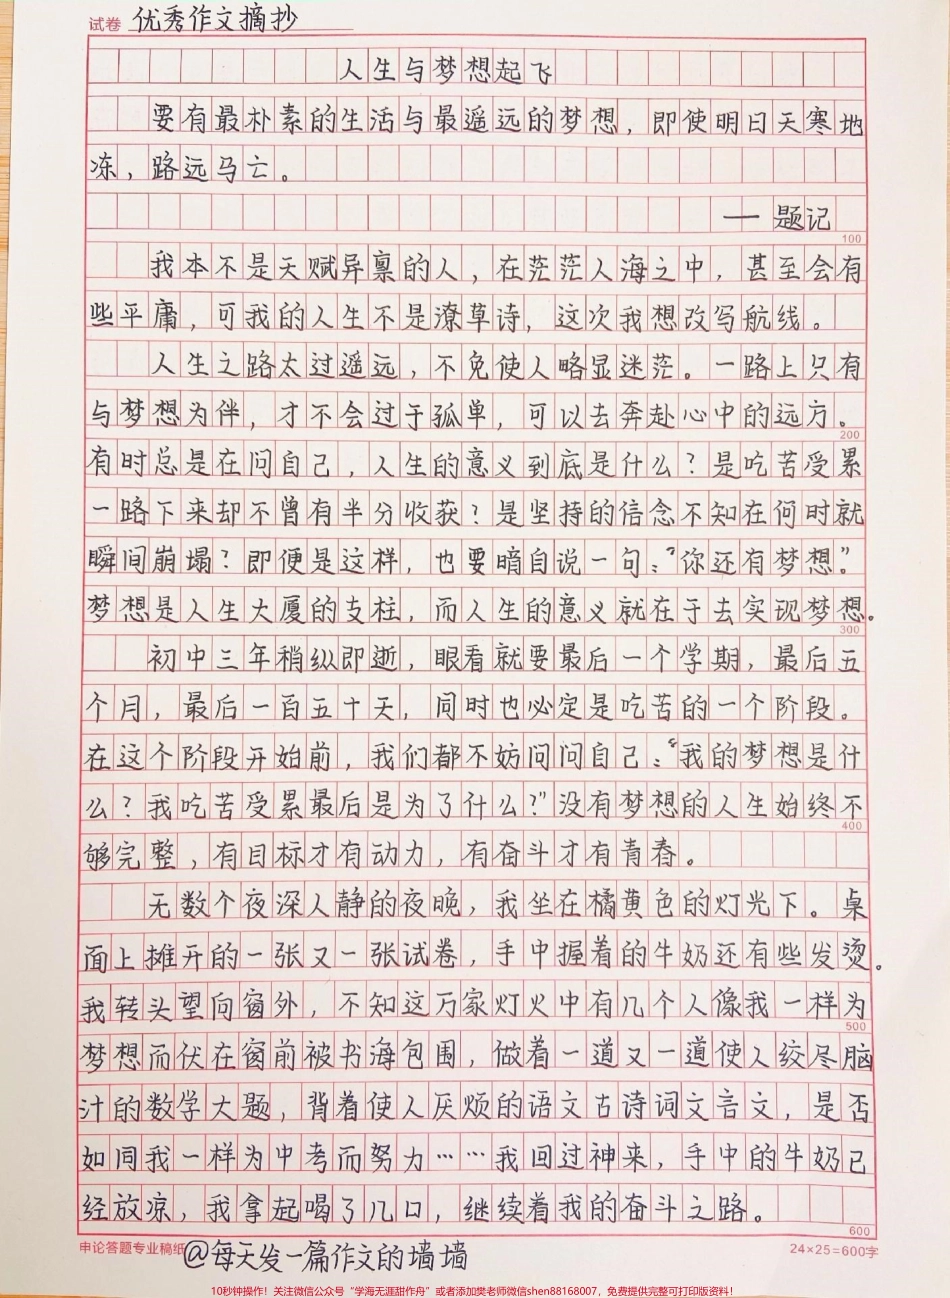 试卷 优秀作文摘抄
人生与梦想起飞
要有最朴素的生活与最遥远的梦想，即使明日天寒地
冻，路远马亡。
——题记
100
我本不是天赋异禀的人，在茫茫人海之中，甚至会有
些平庸，可我的人生不是潦草诗，这次我想改写航线。
人生之路太过遥远，不免使人略显迷茫。一路上只有
与梦想为伴，才不会过于孤单，可以去奔赴心中的远方。
200
有时总是在问自己，人生的意义到底是什么？是吃苦受累
一路下来却不曾有半分收获？是坚持的信念不知在何时就
瞬间崩塌？即便是这样，也要暗自说一句：“你还有梦想”
梦想是人生大厦的支柱，而人生的意义就在于去实现梦想。
300
初中三年稍纵即逝，眼看就要最后一个学期，最后五
个月，最后一百五十天，同时也必定是吃苦的一个阶段。
在这个阶段开始前，我们都不妨问问自己：“我的梦想是什
么？我吃苦受累最后是为了什么？”没有梦想的人生始终不
400
够完整，有目标才有动力，有奋斗才有青春。
无数个夜深人静的夜晚，我坐在橘黄色的灯光下。桌
面上摊开的一张又一张试卷，手中握着的牛奶还有些发烫。
我转头望向窗外，不知这万家灯火中有几个人像我一样为
500
梦想而伏在窗前被书海包围，做着一道又一道使人绞尽脑
汁的数学大题，背着使人厌烦的语文古诗词文言文，是否
如同我一样为中考而努力……我回过神来，手中的牛奶已
经放凉，我拿起喝了几口，继续着我的奋斗之路。
600
申论答题专业稿纸 @每天发一篇作文的墙墙 24×25=600字
10秒钟操作！关注微信公众号“学海无涯甜作舟”或者添加樊老师微信shen88168007，免费提供完整可打印版资料！